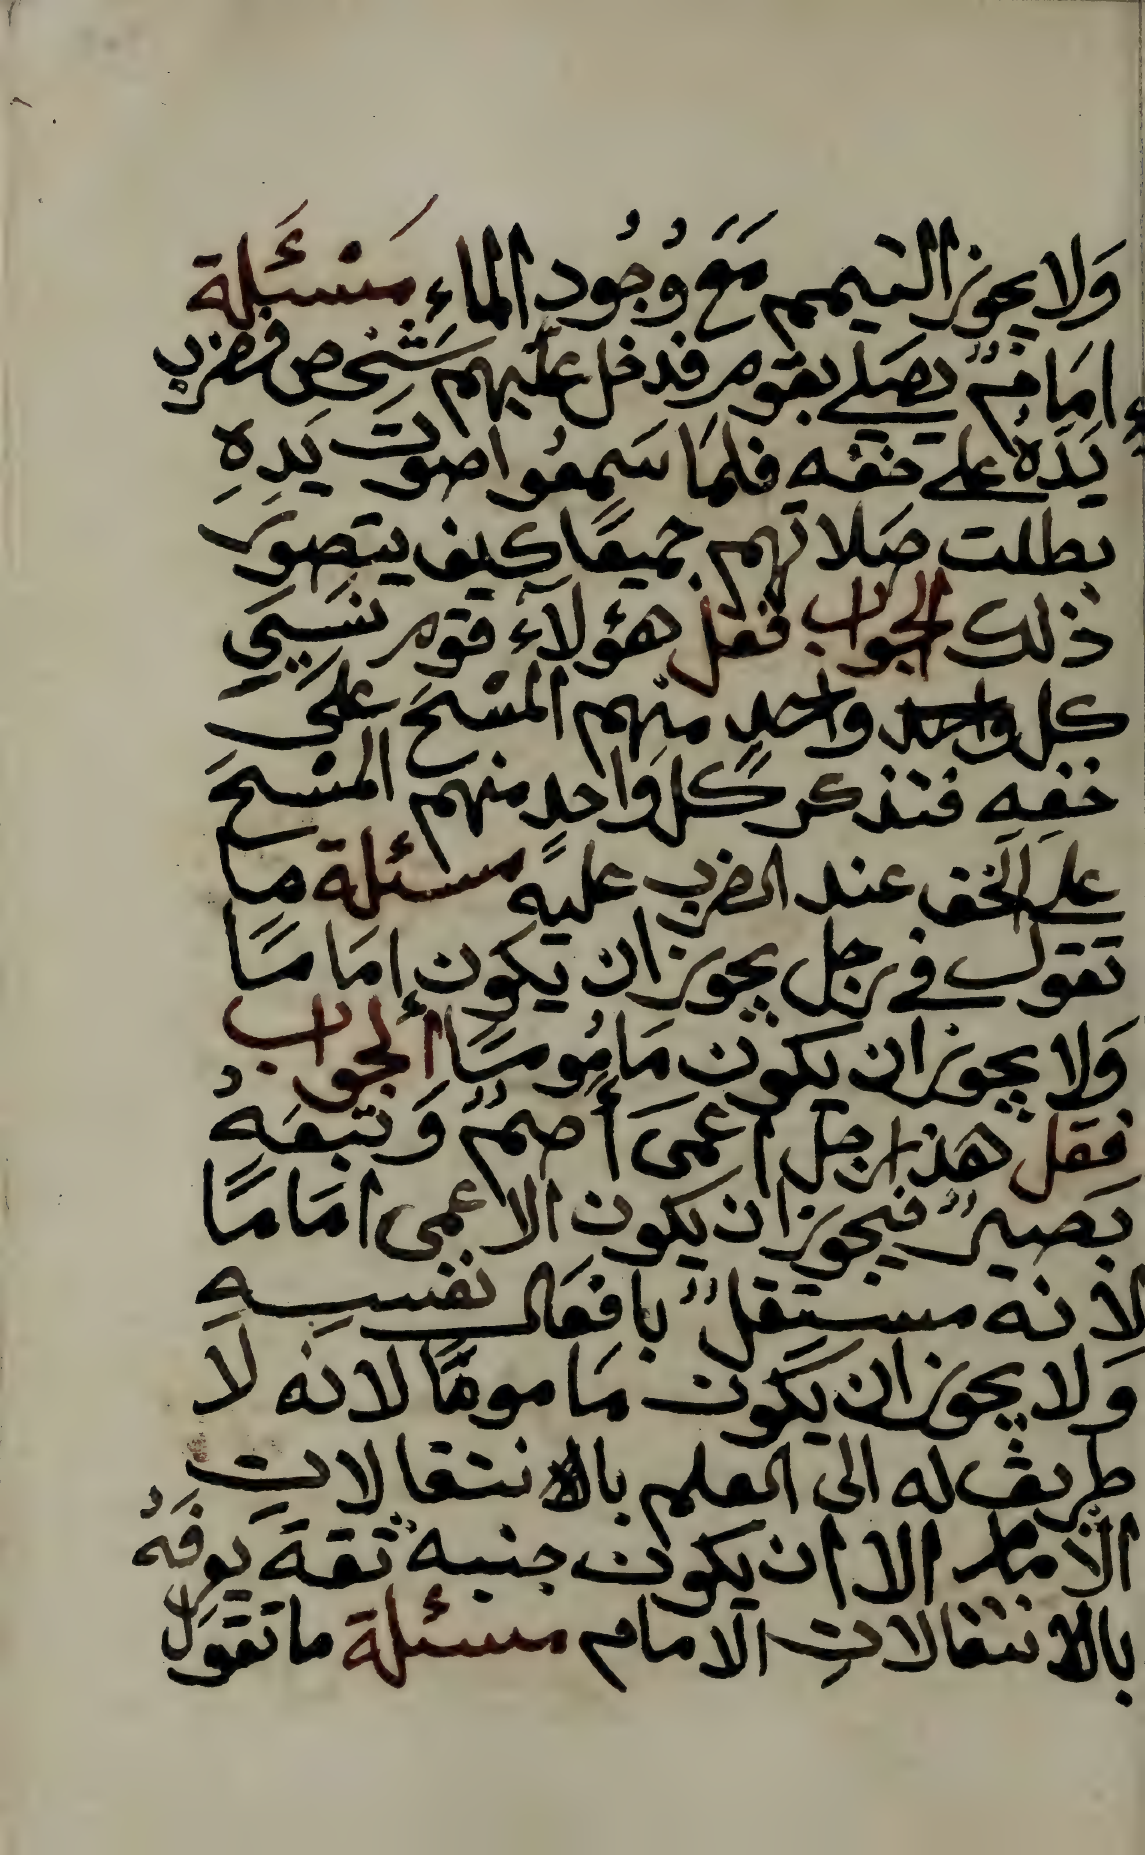 وَلا يجوز التيمم مَعَ وُجُودِ الماء مَسْئَلة
امَامٌ يصَلي بقوم فدخل عليهم شَخص فضرب
يَدَهُ على خفه فلمَا سَمِعُوا صَوتَ يَدِهِ
بطلت صَلاتهم جميعًا كيف يتصور
ذلك الجواب فقل هؤلاءِ قوم نَسِيَ
كل واحد واحدٍ منهم المسْحَ عَلى
خفِهِ فتذكر كل واحدٍ منهم المسْحَ
على الخف عند الضرب عليه مسئلة ما
تقول في رجل يجوز ان يكون امَامًا
وَلا يجوز ان يكون مَامُومًا ألجواب
فقل هذا رجل أعمَى أصمٌ وَتبعَهُ
بَصيرٌ فيجوز ان يكون الاعمى امَامًا
لأنه مستقلٌ بافعَال نفسِهِ
وَلا يجوز ان يكون مَاموما لانه لَا
طريق له الى العلم بالانتقالاتِ
الأمام الا ان يكون جنبه ثقة يوفَهُ
بالانتقالاتِ الامام مسئلة ما تقول